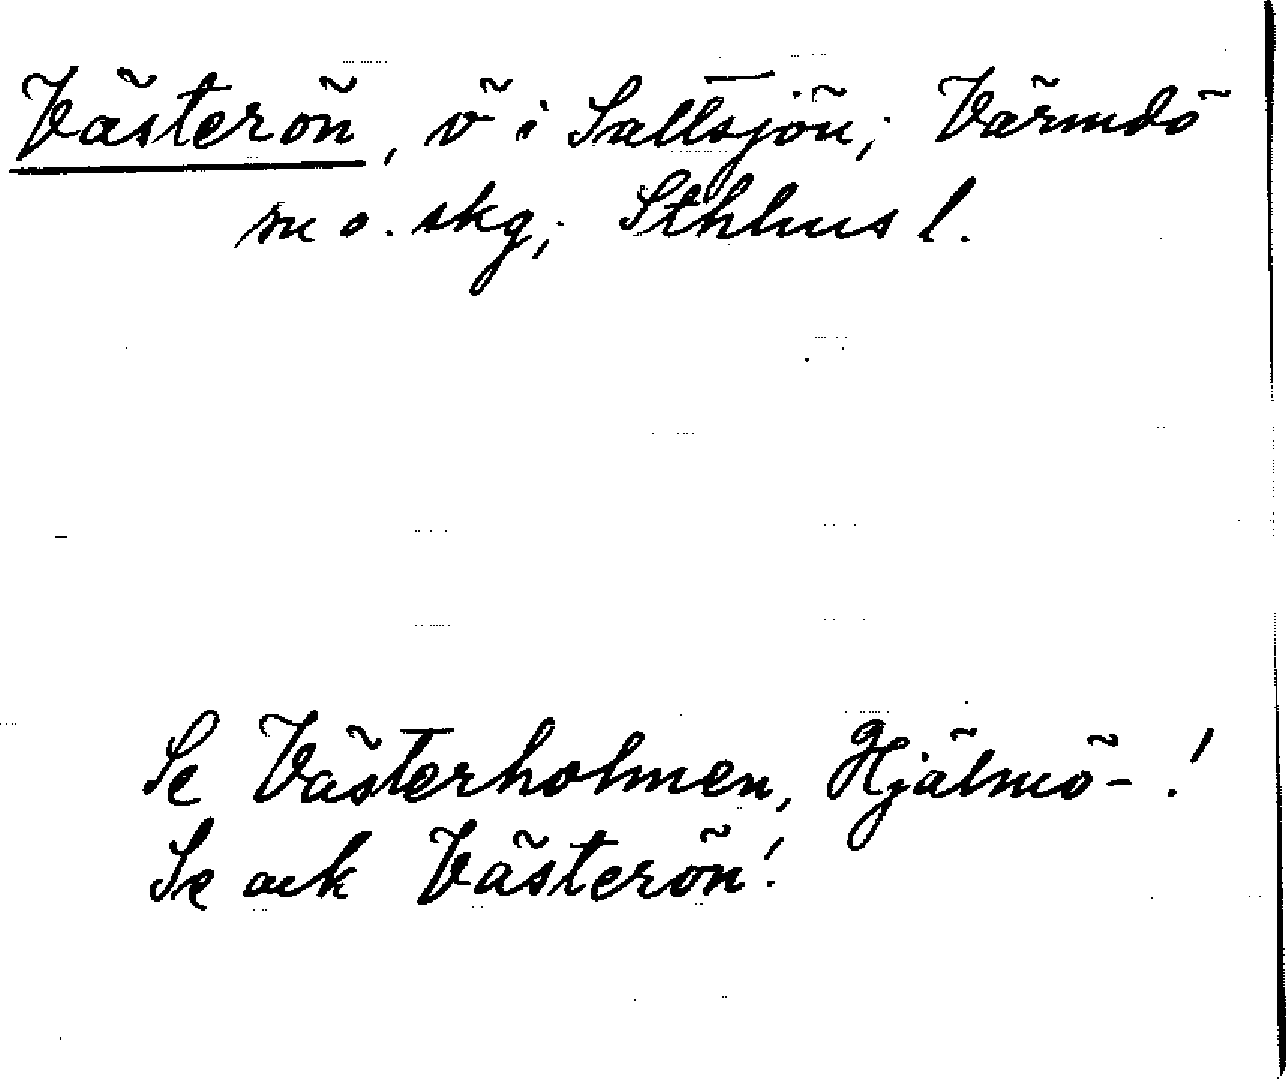 Västerön, ö i Saltsjön; Värmdö
sn o. skg; Sthlms l.
Se Västerholmen, Hjälmö-!
Se ock Västerön!